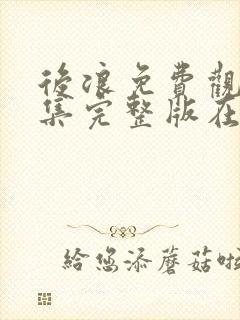 後浪免費觀
集完整版在
給您添蘑菇啦